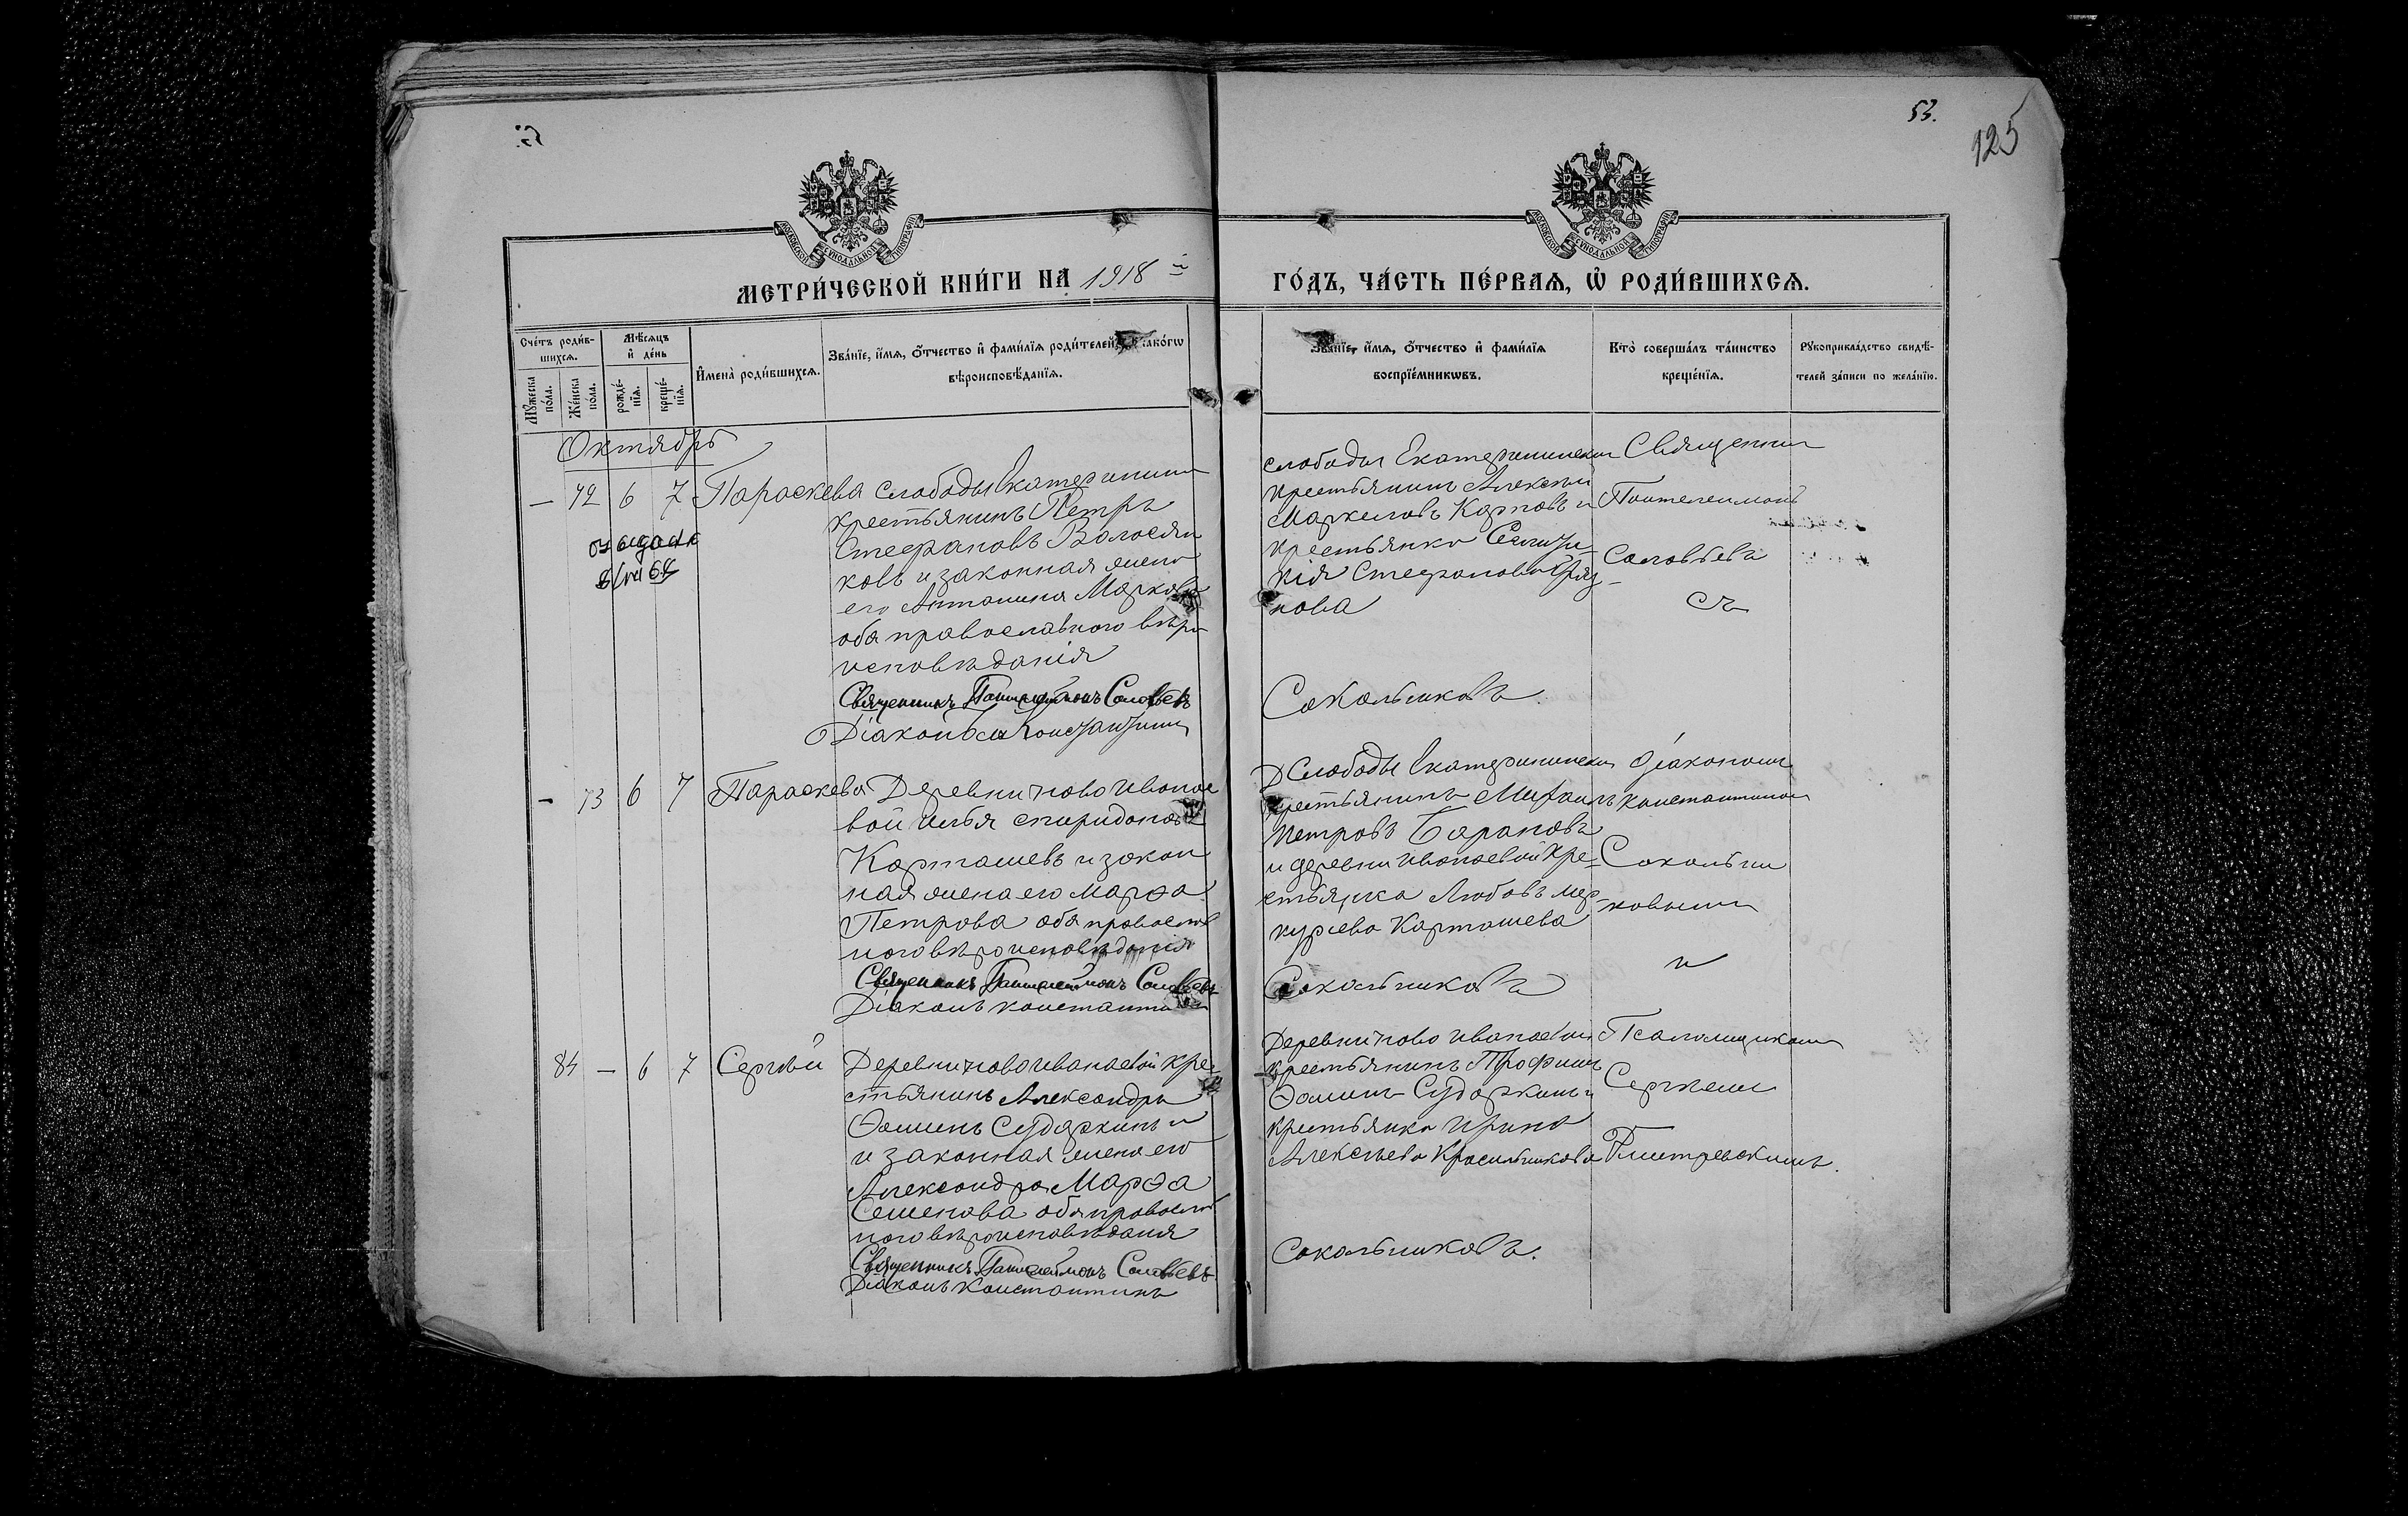 53.
125
МОСКОВСКОЙ СѴНОДАЛЬНОЙ ТИПОГРАФІИ
МОСКОВСКОЙ СѴНОДАЛЬНОЙ ТИПОГРАФІИ
МЕТРИ́ЧЕСКОЙ КНИ́ГИ НА 1918 й
ГО́ДЪ, ЧА́СТЬ ПЕ́РВАѦ, Ѡ҆ РОДИ́ВШИХСѦ.
Сче́тъ роди́в-
шихсѧ.
Мꙋ́жеска
по́ла.
Же́нска
по́ла.
Мѣ́сѧцъ
и҆ де́нь
рожде́-
нїѧ.
креще́-
нїѧ.
И҆мена̀ роди́вшихсѧ.
Зва́нїе, и҆́мѧ, ѻ҆́тчество и҆ фами́лїѧ роди́телей, како́гѡ
вѣроисповѣ́данїѧ.
Зва́нїе, и҆́мѧ, ѻ҆́тчество и҆ фами́лїѧ
воспрїе́мникѡвъ.
Кто̀ соверша́лъ та́инство
креще́нїѧ.
Рꙋкоприкла́дство свидѣ́-
телей за́писи по жела́нїю.
Октябрь
— 72 6 7 Параскева
слободы Екатеринин
крестьянинъ Петръ
Стефановъ Волосян
ковъ и законная жена
его Антонина Маркова
оба православного вѣро
исповѣданія
Священникъ Пантелеймонъ Соловьевъ
Діаконъ Константинъ
слободы Екатерининской
крестьянинъ Алексѣй
Маркеловъ Карповъ и
крестьянка
кія Стефанова
нова
Сокольниковъ
Священник
Пантелеимонъ
Соловьевъ
съ
— 73 6 7 Параскева
Деревни Ново Ивонае
вой Илья Спиридоновъ
Карташевъ и закон
ная жена его Марѳа
Петрова оба православ
ного вѣроисповѣданія
Священникъ Пантелеймонъ Соловьевъ
Діаконъ Константин
Слободы Екатерининской
крестьянинъ Михаилъ
Петровъ Барановъ
и деревни Ивонаевой кре-
стьянка Любовь Мер-
курьева Карташева
Сокольниковъ
діакономъ
Константином
Сокольни
ковымъ
и
84 — 6 7 Сергѣй
Деревни Ново Ивонаевой кре-
стьянинъ Александръ
Ѳоминъ Сударкинъ и
и законная жена его
Александра Марѳа
Семенова оба православ
ного вѣроисповѣданія
Священникъ Пантелеймонъ Соловьевъ
Діаконъ Константинъ
Деревни Ново Ивонаевой
крестьянинъ Трофимъ
Ѳоминъ Сударкинъ и
крестьянка Ирина
Алексѣева Красильникова
Сокольниковъ.
Псаломщикомъ
Сергѣемъ
Дмитревскимъ.